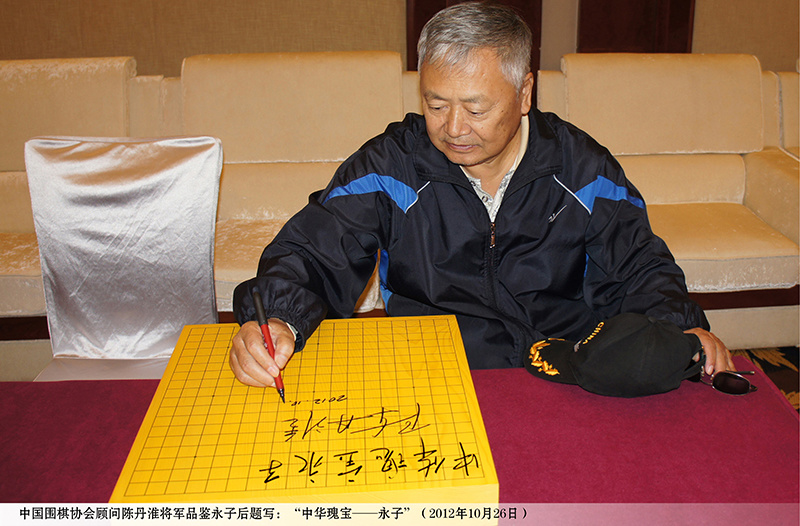 中华瑰宝永子
陈丹淮
2012.10
CHINA
中国围棋协会顾问陈丹淮将军品鉴永子后题写：“中华瑰宝——永子”（2012年10月26日）